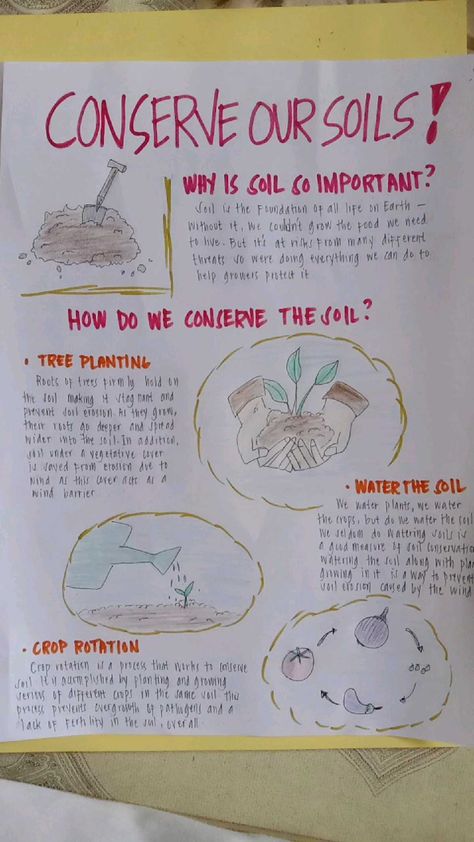 CONSERVE OUR SOILS!
WHY IS SOIL SO IMPORTANT?
Soil is the foundation of all life on Earth –
without it, we couldn't grow the food we need
to live. But it's at risks from many different
threats so were doing everything we can do to
help growers protect it.
HOW DO WE CONSERVE THE SOIL?
• TREE PLANTING
Roots of trees firmly hold on
the soil making it stagnant and
prevent soil erosion. As they grow,
their roots go deeper and spread
wider into the soil. In addition,
soil under a vegetative cover
is saved from erosion due to
wind as this cover acts as a
wind barrier.
• WATER THE SOIL
We water plants, we water
the crops, but do we water the soil
We seldom do watering soils is
a good measure of soil conservation
watering the soil along with plan
growing in it is a way to prevent
soil erosion caused by the wind
• CROP ROTATION
Crop rotation is a process that works to conserve
soil. It is accomplished by planting and growing
series of different crops in the same soil. This
process prevents overgrowth of pathogens and a
lack of fertility in the soil, overall.